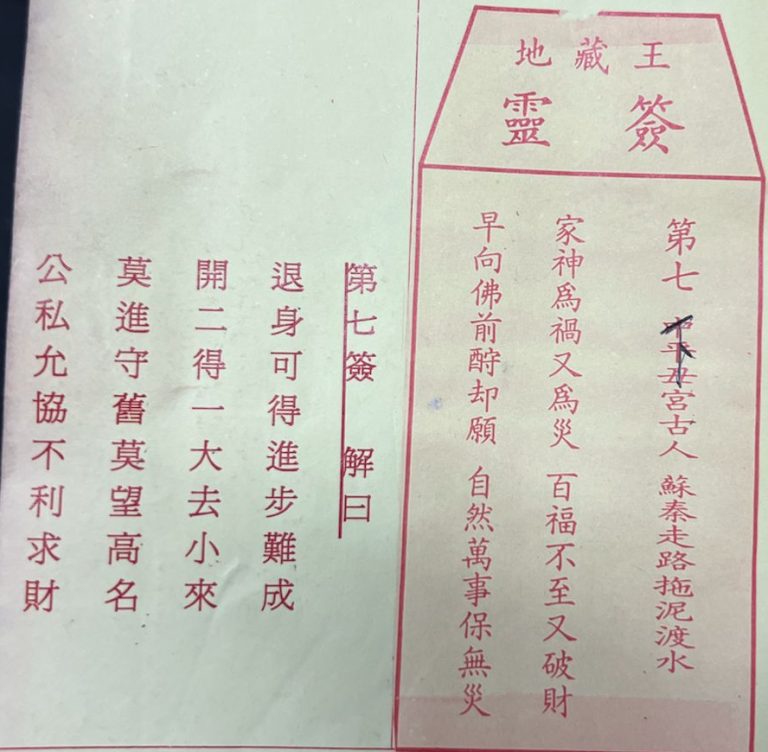 地藏王
靈簽
第七 中平丑宮古人 蘇秦走路拖泥渡水
家神爲禍又爲災 百福不至又破財
早向佛前酧却願 自然萬事保無災
第七簽 解曰
退身可得進步難成
開二得一大去小來
莫進守舊莫望高名
公私允協不利求財